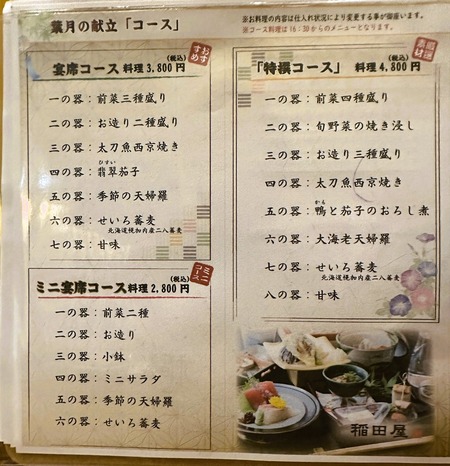 葉月の献立「コース」
※お料理の内容は仕入れ状況により変更する事が御座います。
※コース料理は16:30からのメニューとなります。
おすすめ
(税込)
宴席コース 料理3.800円
一の器:前菜三種盛り
二の器:お造り二種盛り
三の器:太刀魚西京焼き
ひすい
四の器:翡翠茄子
五の器:季節の天婦羅
六の器:せいろ蕎麦
北海道幌加内産二八蕎麦
七の器:甘味
ミニコース
(税込)
ミニ宴席コース 料理2.800円
一の器:前菜二種
二の器:お造り
三の器:小鉢
四の器:ミニサラダ
五の器:季節の天婦羅
六の器:せいろ蕎麦
(税込)
「特撰コース」 料理4.800円
一の器:前菜四種盛り
二の器:旬野菜の焼き浸し
三の器:お造り三種盛り
四の器:太刀魚西京焼き
かも
五の器:鴨と茄子のおろし煮
六の器:大海老天婦羅
七の器:せいろ蕎麦
北海道幌加内産二八蕎麦
八の器:甘味
稲田屋